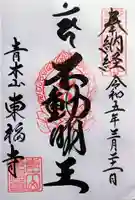 奉納経
令和五年三月二十一日
不動明王
青木山
東福寺